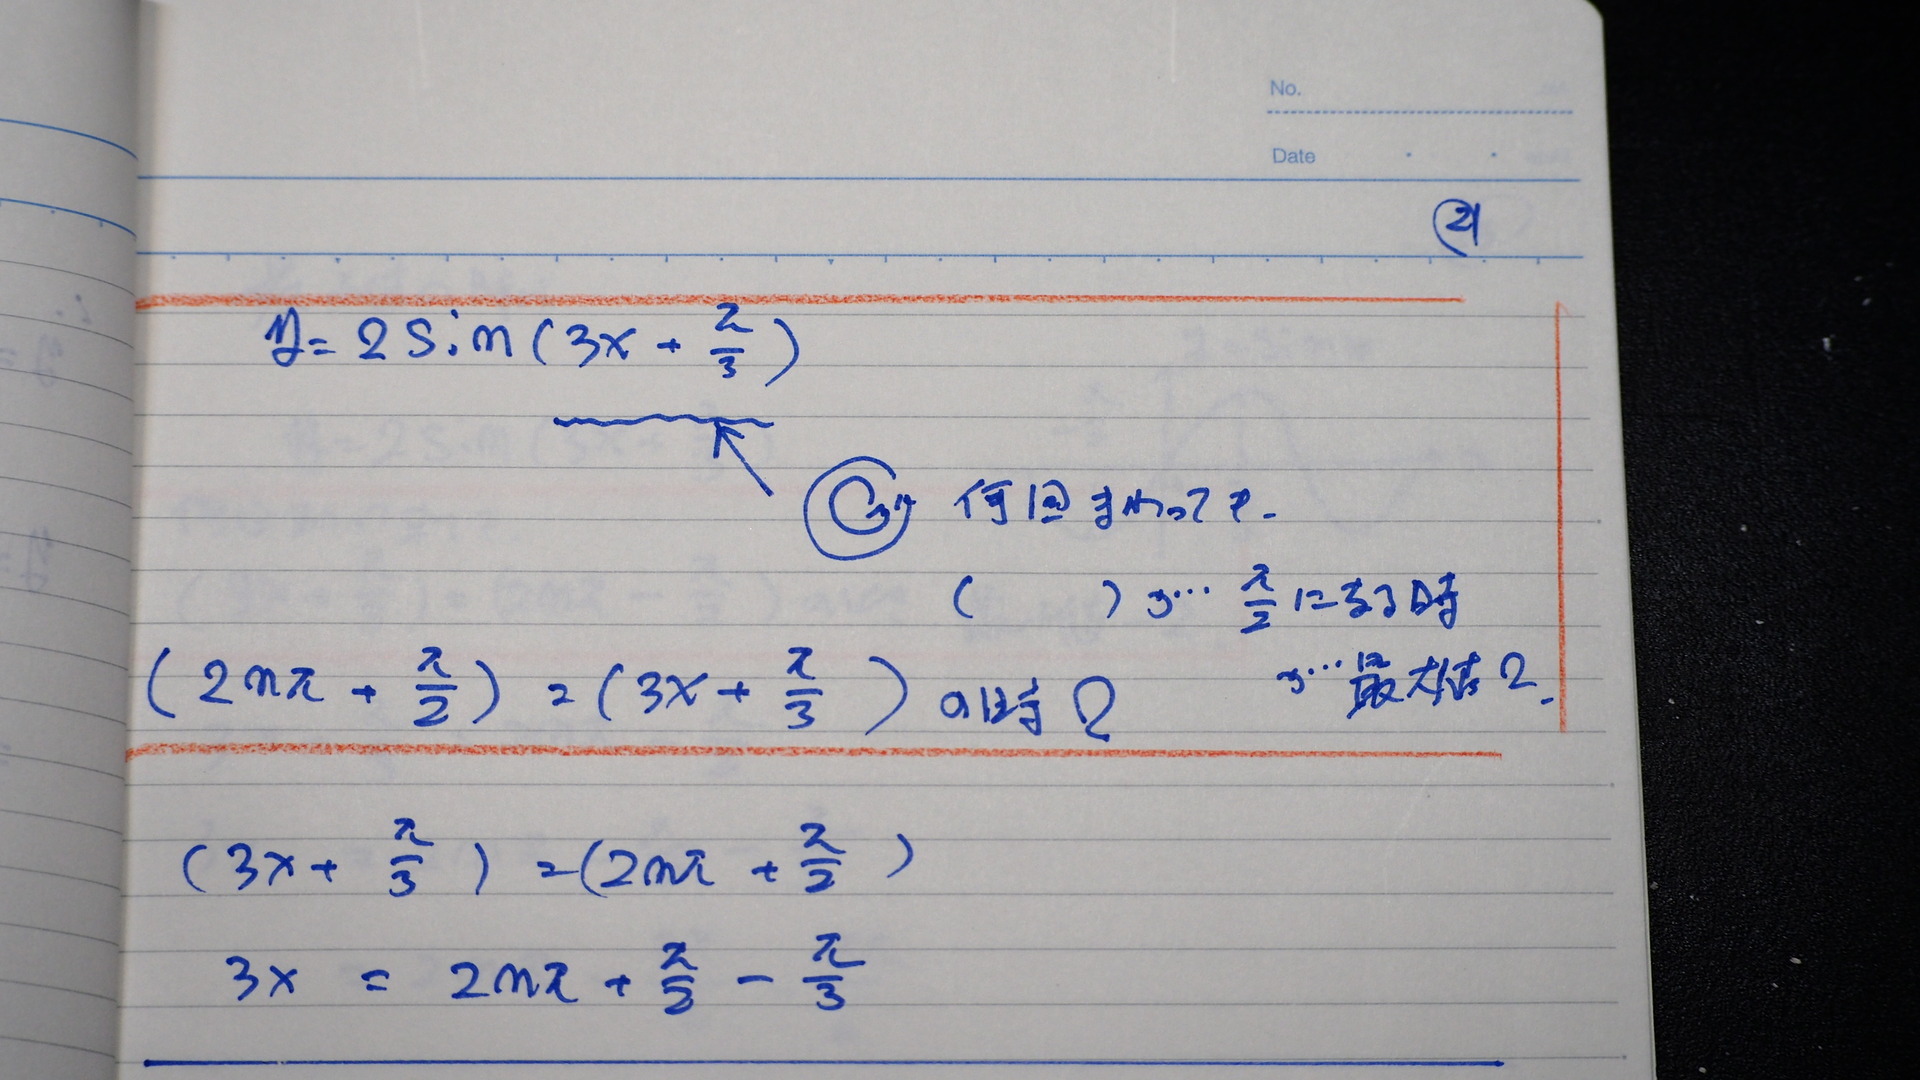 No.
Date
21
y = 2 sin (3x + π/3)
何回まわっても.
( ) が… π/2 になる時
が… 最大値 2.
(2nπ + π/2) = (3x + π/3) の時 2
(3x + π/3) = (2nπ + π/2)
3x = 2nπ + π/2 - π/3